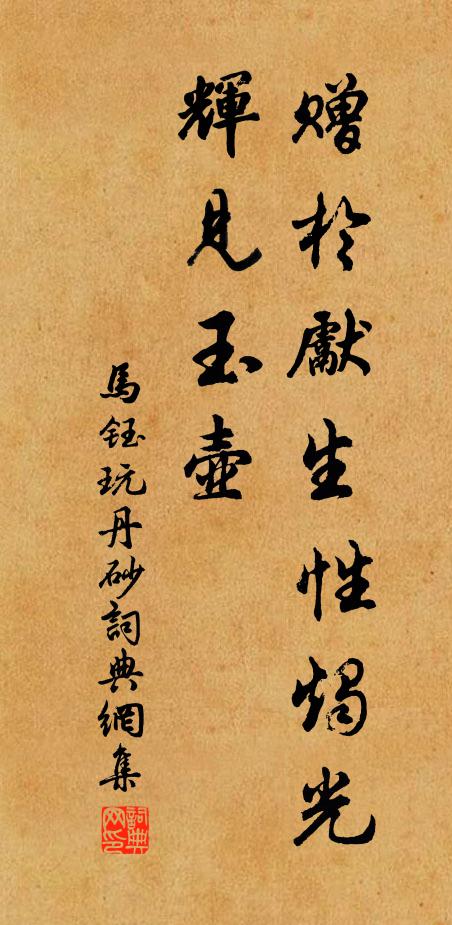 赠於獻生性燭光
輝見玉壺
馬鈺玩丹砂詞典網集
詞典网印